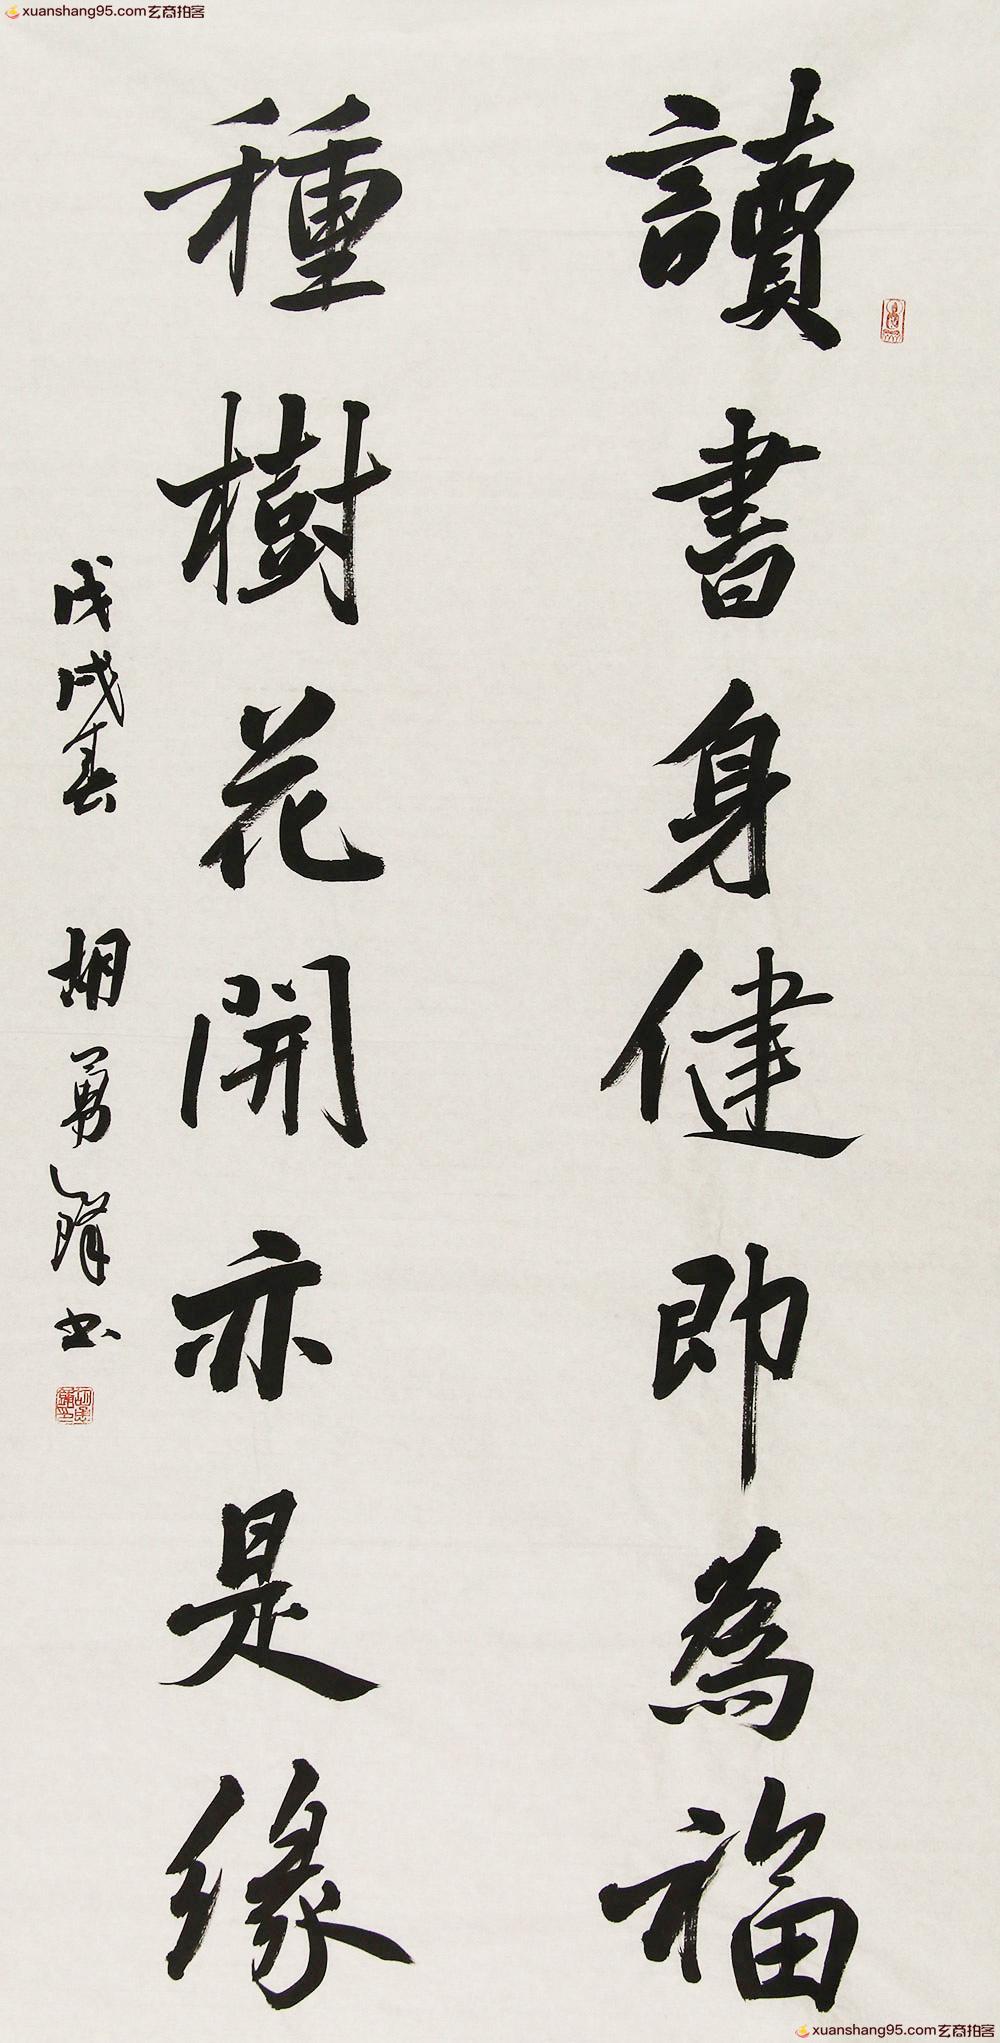 xuanshang95.com玄商拍客
讀書身健即為福
種樹花開亦是緣
戊戌春 胡勇鋒书
xuanshang95.com玄商拍客